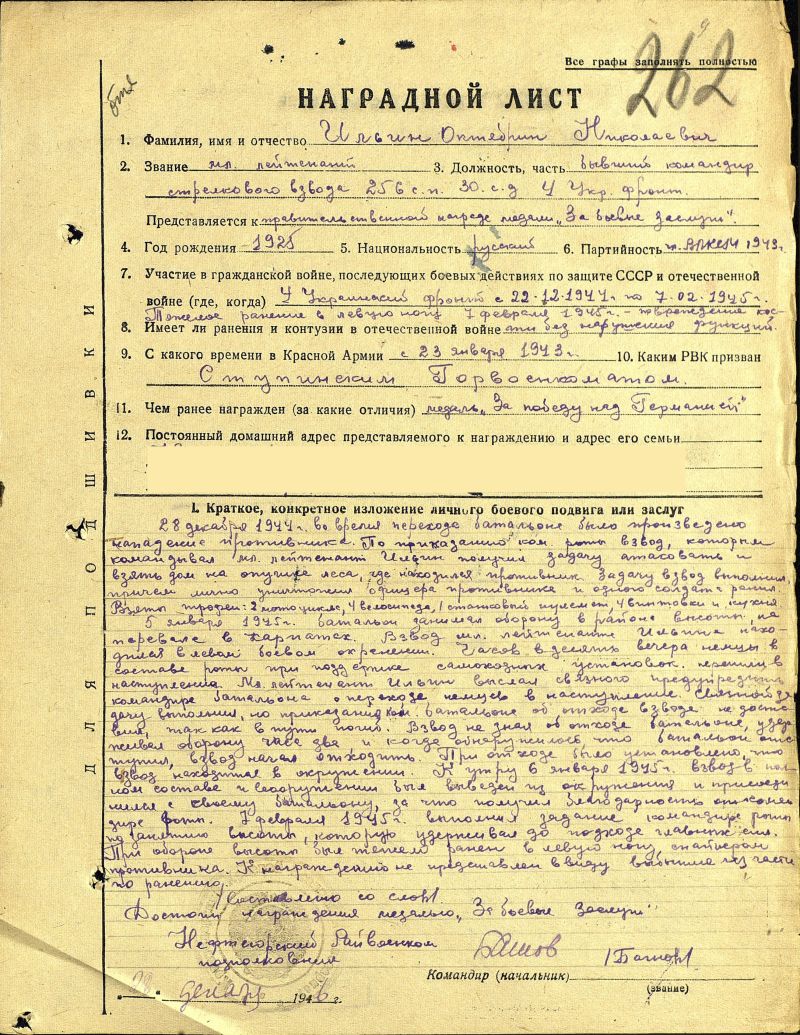 Все графы заполнять полностью
262
НАГРАДНОЙ ЛИСТ
1. Фамилия, имя и отчество Ильин Октябрин Николаевич
2. Звание мл. лейтенант 3. Должность, часть бывший командир
стрелкового взвода 256 с.п. 30. с.д 4 Укр. фронт.
Представляется к правительственной награде медали „За боевые заслуги“
4. Год рождения 1925 5. Национальность русский 6. Партийность ВЛКСМ 1943 г
7. Участие в гражданской войне, последующих боевых действиях по защите СССР и отечественной
войне (где, когда) 4 Украинский фронт с 22-12-1944 г по 7.02.1945 г.
Тяжелое ранение в левую ногу 7 февраля 1945 г. - повреждение кос-
8. Имеет ли ранения и контузии в отечественной войне ти без нарушения функций.
9. С какого времени в Красной Армии с 23 января 1943 г. 10. Каким РВК призван
Ступинским Горвоенкоматом.
11. Чем ранее награжден (за какие отличия) медаль „За победу над Германией“
12. Постоянный домашний адрес представляемого к награждению и адрес его семьи
I. Краткое, конкретное изложение личного боевого подвига или заслуг
28 декабря 1944 г. во время перехода батальона было произведено
нападение противника. По приказанию ком. роты взвод, которым
командывал мл. лейтенант Ильин получил задачу атаковать и
взять дом на опушке леса, где находился противник. Задачу взвод выполнил,
причем лично уничтожил офицера противника и одного солдата ранил.
Взяты трофеи: 2 мотоцикла, 4 велосипеда, 1 станковый пулемет, 4 винтовки и кухня
5 января 1945 г. батальон занимал оборону в районе высоты, на
перевале в Карпатах. Взвод мл. лейтенанта Ильина нахо-
дился в левом боевом охранении. Часов в десять вечера немцы в
составе роты при поддержке самоходных установок перешли в
наступление. Мл. лейтенант Ильин выслал связного предупредить
командира батальона о переходе немцев в наступление. Связной за-
дачу выполнил, но приказания ком. батальона об отходе взвода не доста-
вил, так как в пути погиб. Взвод не знал об отходе батальона, удер-
живал оборону часа два и когда обнаружилось что батальон отс-
тупил, взвод начал отходить. При отходе было установлено, что
взвод находится в окружении. К утру 6 января 1945 г. взвод в пол-
ном составе и вооружении был выведен из окружения и присоеди-
нился к своему батальону, за что получил благодарность от коман-
дира роты. 7 февраля 1945 г. выполнил задание командира роты
по занятию высоты, которую удерживал до подхода главных сил.
При обороне высоты был тяжело ранен в левую ногу, снайпером
противника. К награждению не представлен ввиду выбытия из части
по ранению.
Составлено со слов
Достоин награждения медалью „За боевые заслуги“
Нефтегорский Райвоенком
подполковник
Командир (начальник)
(звание)
декабря 1946 г.
ДЛЯ ПОДШИВКИ